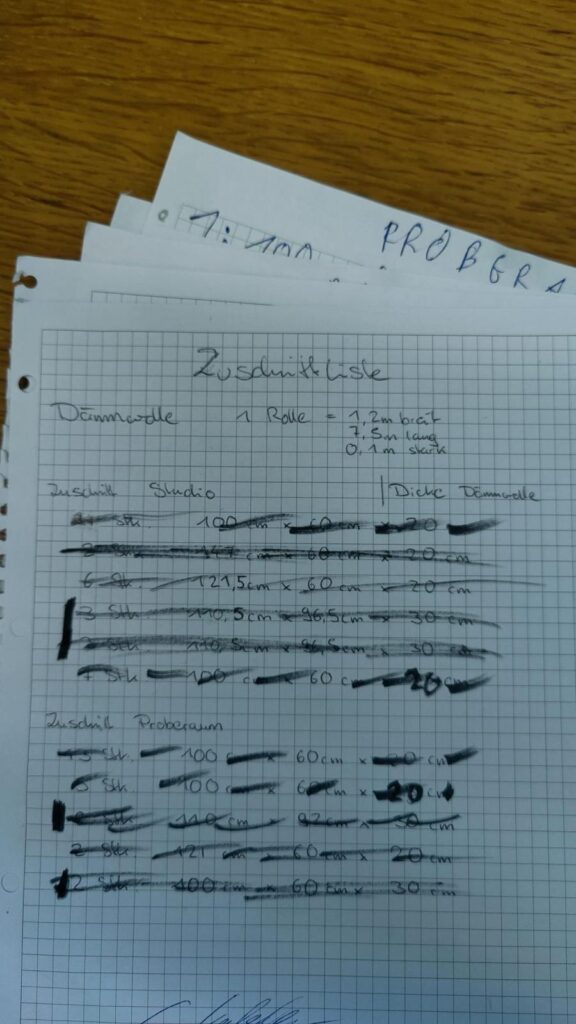 1:100
PROBERA
Zuschnittliste
Dämmwolle 1 Rolle = 1,2m breit
7,5m lang
0,1m stark
Zuschnitt Studio | Dicke Dämmwolle
Stk. 100 cm × 60 cm × 20
Stk. 147 cm × 60 cm × 20 cm
6 Stk. 121,5cm × 60 × 20 cm
3 Stk 110,5cm × 96,5cm × 30 cm
Stk 110,5cm × 96,5cm × 30 cm
7 Stk 100 cm × 60 cm 20 cm
Zuschnitt Proberaum
Stk. 100 60cm × 20 cm
5 Stk. 100 60 cm × 20 cm
Stk 110 cm × 92 cm × 30 cm
2 Stk. 121 cm 60 cm × 20 cm
12 Stk 100 cm × 60 cm × 30 cm